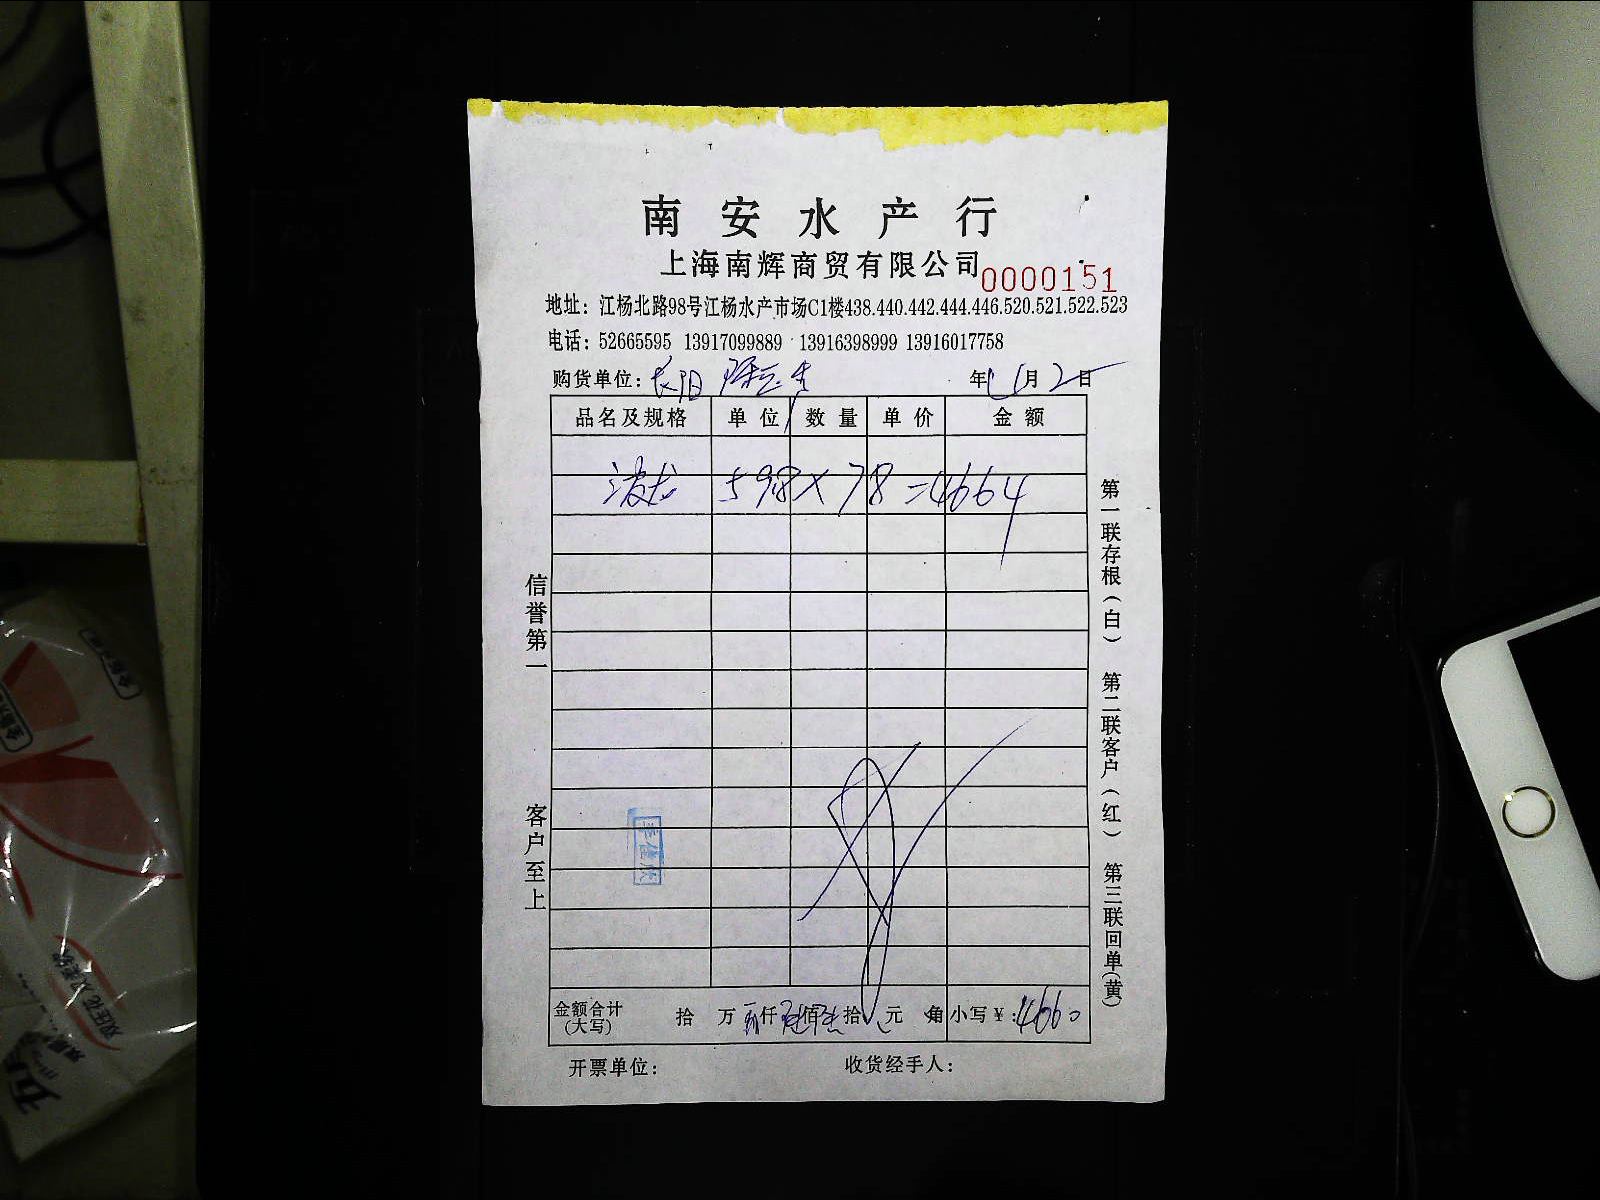 南安水产行
上海南辉商贸有限公司
0000151
地址：江杨北路98号江杨水产市场C1楼438.440.442.444.446.520.521.522.523
电话：52665595 13917099889 13916398999 13916017758
购货单位： 年 月2日
品名及规格 单位 数量 单价 金额
波龙 59.8×78=4664
信誉第一 客户至上
第一联存根（白） 第二联客户（红） 第三联回单（黄）
金额合计（大写） 拾 万 仟 佰 拾 元 角 小写￥：4660
开票单位： 收货经手人：